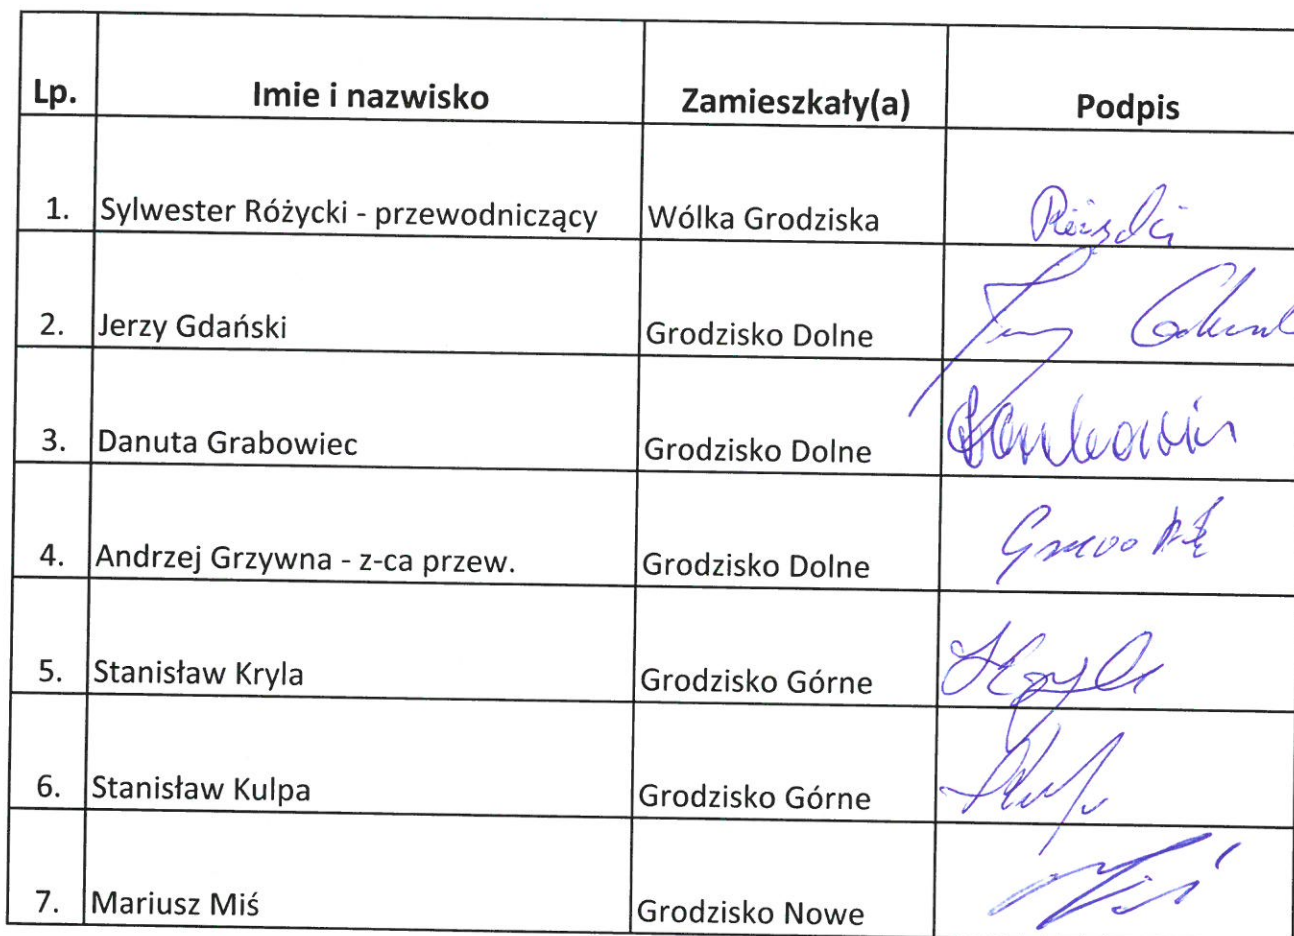 Lp. Imie i nazwisko Zamieszkały(a) Podpis
1. Sylwester Różycki - przewodniczący Wólka Grodziska
2. Jerzy Gdański Grodzisko Dolne Jerzy
3. Danuta Grabowiec Grodzisko Dolne
4. Andrzej Grzywna - z-ca przew. Grodzisko Dolne
5. Stanisław Kryla Grodzisko Górne
6. Stanisław Kulpa Grodzisko Górne
7. Mariusz Miś Grodzisko Nowe Miś